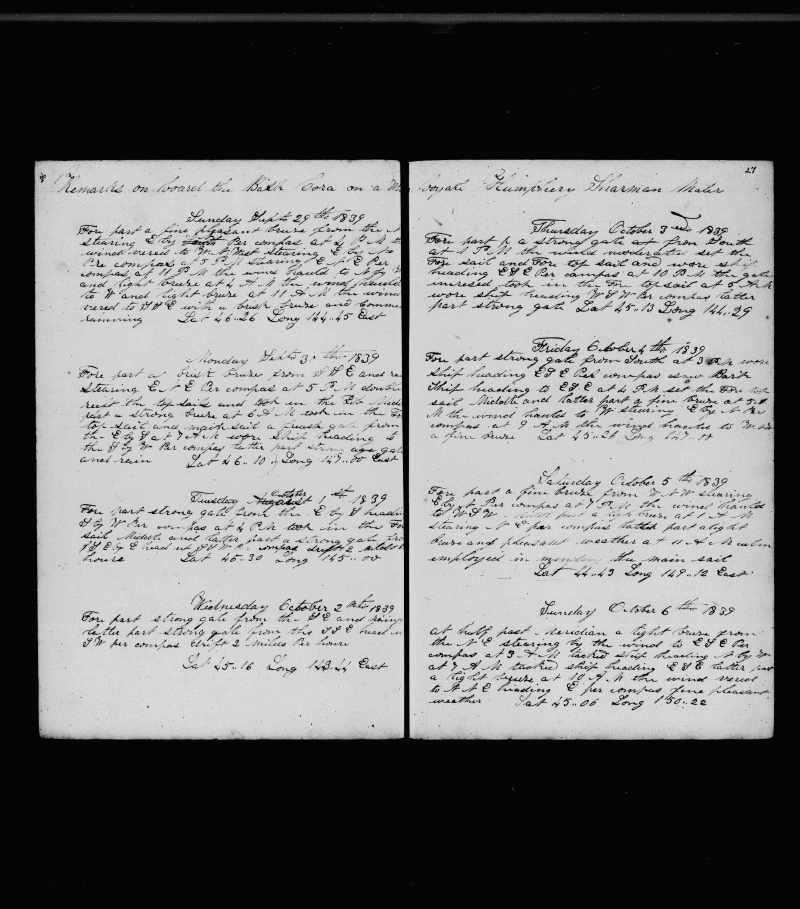 Remarks on board the Bark Cora on a
Sunday Sept 29 th 1839
Fore part a fine pleasant breze from the N
stearing E by Per compas at 4 P M the
wind vered to W N West stearing E by
Per compas at 5 P M stearing E N E Per
compas at 11 P M the wind hauld to N by
and light breze at 4 A M the wind hauld
to W and light breze at 11 A M the wind
vered to S S E with a brisk breze and
rainning Lat 46-26 Long 144..45 East
Monday Sept 3 th 1839
Fore part a brisk breze from S S E and
stearing E N E Per compas at 5 P M double
reast the top sails and took in the Gib
part a strong breze at 6 A M took in the
top sail and main sail a fresh gale from
the E by S at 7 A M wore Ship heading
S by W Per compas latter part strong gale
and rain Lat 46-10 Long 147..00 East
October
Tuesday August 1 st 1839
Fore part strong gale from the E by S heading
S by W Per compas at 4 P M took in the
sail Middle and latter part a strong gale
S E by E head S S W compas drift 2
hours Lat 45-30 Long 145..00
Wednesday October 2 1839
Fore part strong gale from the S E and
latter part strong gale from the S S E head
S W per compas drift 2 Miles Per hour
Lat 45-16 Long 143-44 East
27
Humphery Sharman Mater
Thursday October 3 1839
Fore part a strong gale at from South
at 1 P M the wind moderatee set the
Fore sail and Fore top sail and wore ship
heading E S E Per compas at 10 P M the gale
incresed took in the Fore topsail at 5 A M
wore ship heading W S W Per compas latter
part strong gale Lat 45-13 Long 144..29
Friday October 4 th 1839
Fore part strong gale from South at 3 P M wore
Ship heading E S E Per compas saw Bark
Ship heading to E S E at 4 P M set the Fore top
sail Middle and latter part a fine breze at 5
M the wind hauld to W stearing E by N Per
compas at 9 A M the wind hauld to
a fine breze Lat 45-26 Long 147..00
Saturday October 5 th 1839
Fore part a fine breze from W N W stearing
E by N Per compas at 7 P M the wind hauld
to W S W part a light breze at 1 A M
stearing N E per compas latter part alight
breze and pleasant weather at 11 A M calm
employed in mending the main sail
Lat 44-43 Long 149-12 East
Sunday October 6 th 1839
at half past Meridian a light breze from
the N E stearing by the wind to E S E Per
compas at 3 A M tacked ship heading N by W
at 7 A M tacked ship heading E S E latter part
a light breze at 10 A M the wind vered
to N N E heading E per compas fine pleasant
weather Lat 45..06 Long 150..22